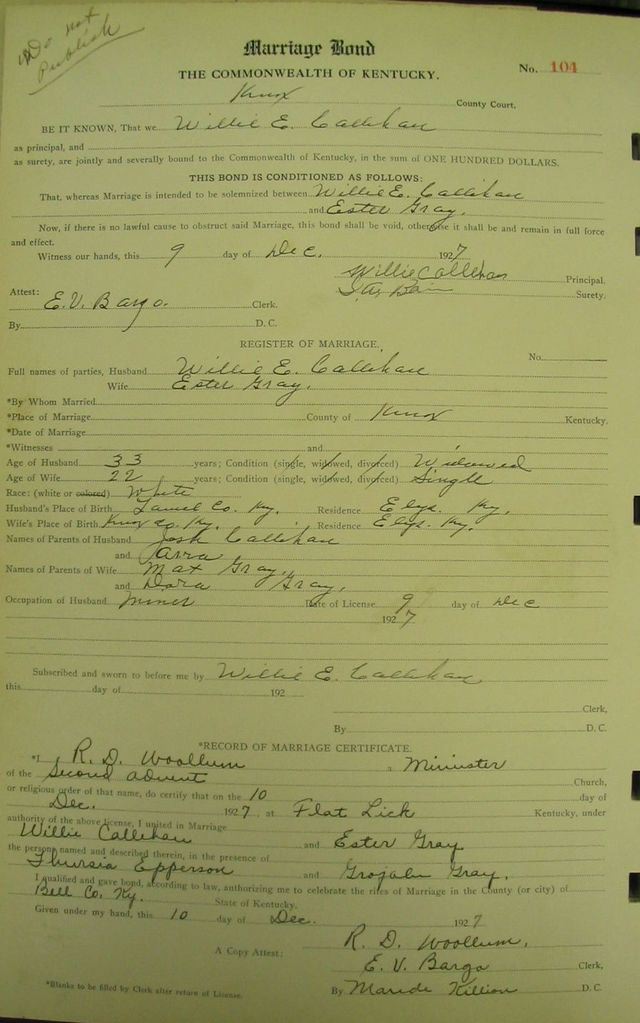 Do not
Publish
Marriage Bond
THE COMMONWEALTH OF KENTUCKY.
No. 104
Knox County Court,
BE IT KNOWN, That we Willie E. Callihan
as principal, and
as surety, are jointly and severally bound to the Commonwealth of Kentucky, in the sum of ONE HUNDRED DOLLARS.
THIS BOND IS CONDITIONED AS FOLLOWS:
That, whereas Marriage is intended to be solemnized between Willie E. Callihan
and Ester Gray.
Now, if there is no lawful cause to obstruct said Marriage, this bond shall be void, otherwise it shall be and remain in full force
and effect.
Witness our hands, this 9 day of Dec. 1927
Willie Callihan Principal.
Bain Surety.
Attest: E. V. Bargo. Clerk.
By D. C.
REGISTER OF MARRIAGE.
No.
Full names of parties, Husband Willie E. Callihan
Wife Ester Gray.
*By Whom Married
*Place of Marriage County of Knox Kentucky.
*Date of Marriage
*Witnesses and
Age of Husband 33 years; Condition (single, widowed, divorced) Widowed
Age of Wife 22 years; Condition (single, widowed, divorced) Single
Race: (white or colored) White
Husband's Place of Birth Laurel Co. Ky. Residence Elys. Ky.
Wife's Place of Birth Knox Co. Ky. Residence Elys. Ky.
Names of Parents of Husband Josh Callihan
and Arra
Names of Parents of Wife Max Gray.
and Dora Gray.
Occupation of Husband Miner Date of License 9 day of Dec
1927
Subscribed and sworn to before me by Willie E. Callihan
this day of 192
Clerk,
By D. C.
*RECORD OF MARRIAGE CERTIFICATE.
*I R. D. Woollum a Minister
of the Second Advent Church,
or religious order of that name, do certify that on the 10 day of
Dec. 1927, at Flat Lick Kentucky, under
authority of the above license, I united in Marriage
Willie Callihan and Ester Gray
the persons named and described therein, in the presence of
Thursia Epperson and Gray.
I qualified and gave bond, according to law, authorizing me to celebrate the rites of Marriage in the County (or city) of
Bell Co. Ky. State of Kentucky.
Given under my hand, this 10 day of Dec. 1927
R. D. Woollum.
A Copy Attest: E. V. Bargo Clerk,
*Blanks to be filled by Clerk after return of License. By Killion D. C.